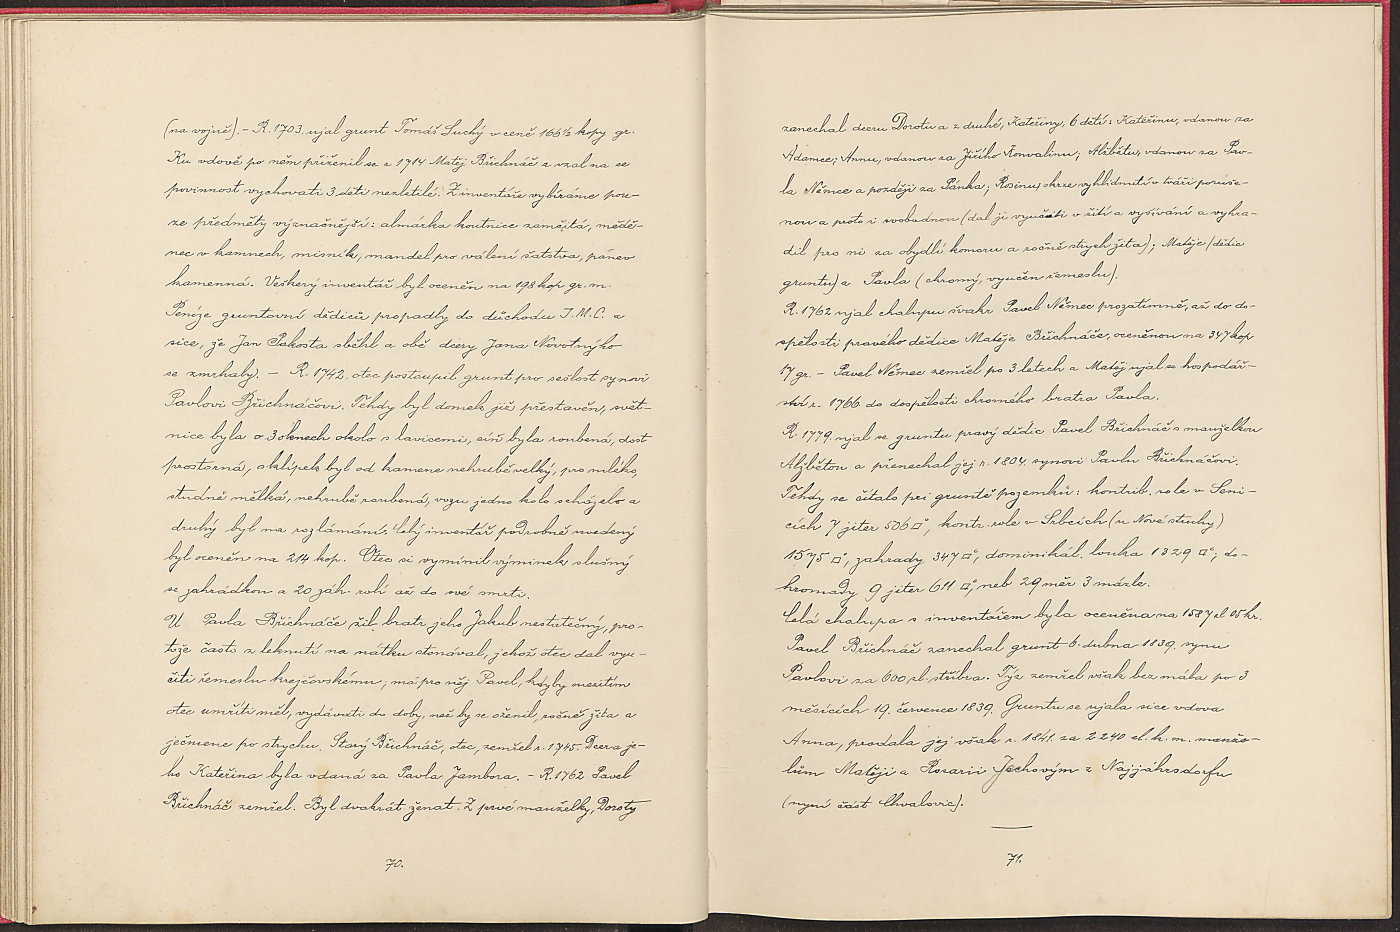 (na vojně). – R. 1703. ujal grunt Tomáš Suchý v ceně 166½ kopy gr.
Ku vdově po něm přiženil se r. 1714 Matěj Břichnáč a vzal na se
povinnost vychovati 3 děti nezletilé. Z inventáře vybíráme pou-
ze předměty význačnější: almárka koutnice zamčitá, mědě-
nec v kamnech, misník, mandel pro válení šatstva, pánev
kamenná. Veškerý inventář byl oceněn na 198 kop gr. m.
Peníze gruntovní dědiců propadly do důchodu J. M. C. a
sice, že Jan Pakosta sběhl a obě dcery Jana Novotnýho
se zmrhaly. – R. 1742. otec postoupil grunt pro sešlost synovi
Pavlovi Břichnáčovi. Tehdy byl domek již přestavěn, svět-
nice byla o 3 oknech okolo s lavicemi, síň byla roubená, dost
prostorná, a sklípek byl od kamene nehrubě velký, pro mlíko,
studně mělká, nehrubě roubená, vozu jedno kolo scházelo a
druhý byl na rozlámání. Celý inventář podrobně uvedený
byl oceněn na 214 kop. Otec si vymínil výminek slušný
se zahrádkou a 20 záh. rolí až do své smrti.
U Pavla Břichnáče žil bratr jeho Jakub nestatečný, pro-
tože časti z leknutí na nátku stonával, jehož otec dal vyu-
čiti řemeslu krejčovskému; má pro něj Pavel, kdyby mezitím
otec umříti měl, vydávati do doby, než by se oženil, ročně žita a
ječmene po strychu. Starý Břichnáč, otec, zemřel r. 1745. Dcera je-
ho Kateřina byla vdaná za Pavla Jambora. – R. 1762 Pavel
Břichnáč zemřel. Byl dvakrát ženat. Z prvé manželky, Doroty
70.
zanechal dceru Dorotu a z druhé, Kateřiny, 6 dětí: Kateřinu, vdanou za
Adamce; Annu, vdanou za Jiřího Konvalinu; Alžbětu, vdanou za Pav-
la Němce a později za Pánka; Rosinu, skrze vyhlidnutí v tváři poruše-
nou a proto i svobodnou (dal ji vyučiti v šití a vyšívání a vyhra-
dil pro ni za obydlí komoru a ročně strych žita); Matěje (dědice
gruntu) a Pavla (chromý, vyučen řemeslu).
R. 1762 ujal chalupu švakr Pavel Němec prozatímně, až do do-
spělosti pravého dědice Matěje Břichnáče, oceněnou na 347 kop
17 gr. – Pavel Němec zemřel po 3 letech a Matěj ujal se hospodář-
ství r. 1766. do dospělosti chromého bratra Pavla.
R. 1779. ujal se gruntu pravý dědic Pavel Břichnáč s manželkou
Alžbětou a přenechal jej r. 1804. synovi Pavlu Břichnáčovi.
Tehdy se čítalo při gruntě pozemků: kontrib. role v Seni-
cích 7 jiter 506 □°, kontr. role v Srbcích (u Nové struhy)
1575 □°, zahrady 347 □°, dominikál. louka 1329 □°; do-
hromady 9 jiter 611 □°, neb 29 měr 3 mázle.
Celá chalupa s inventářem byla oceněna na 1587 zl 05 kr.
Pavel Břichnáč zanechal grunt 6. dubna 1839. synu
Pavlovi za 600 zl. stříbra. Týž zemřel však bez mála po 3
měsících 19. července 1839. Gruntu se ujala sice vdova
Anna, prodala jej však r. 1841. za 2240 zl. k. m. manže-
lům Matěji a Rosarii Jechovým z Najjáhrsdorfu
(nyní část Chvalovic).
71.